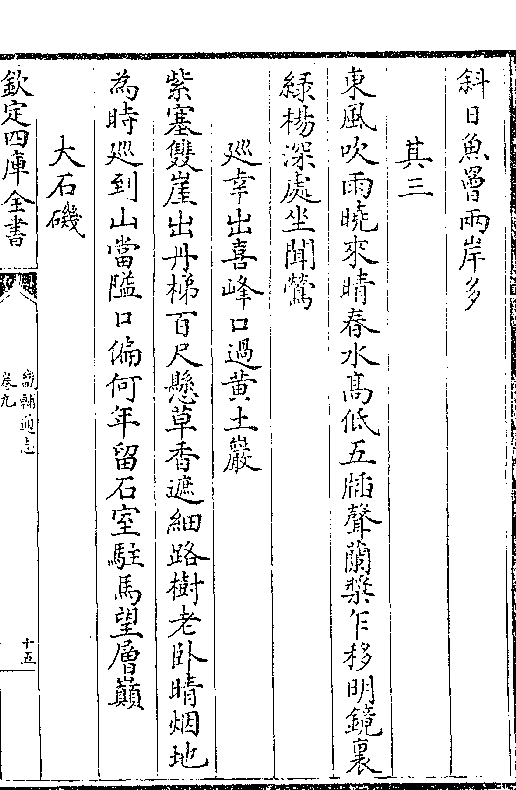 斜日魚罾兩岸多
其三
東風吹雨曉來晴春水髙低五牐聲蘭槳乍移明鏡裏
緑楊深處坐聞鶯
巡幸出喜峰口過黄土巖
紫塞雙崖出丹梯百尺懸草香遮細路樹老卧晴烟地
為時廵到山當隘口偏何年留石室駐馬望層巔
大石磯
欽定四庫全書
畿輔通志
卷九
十五